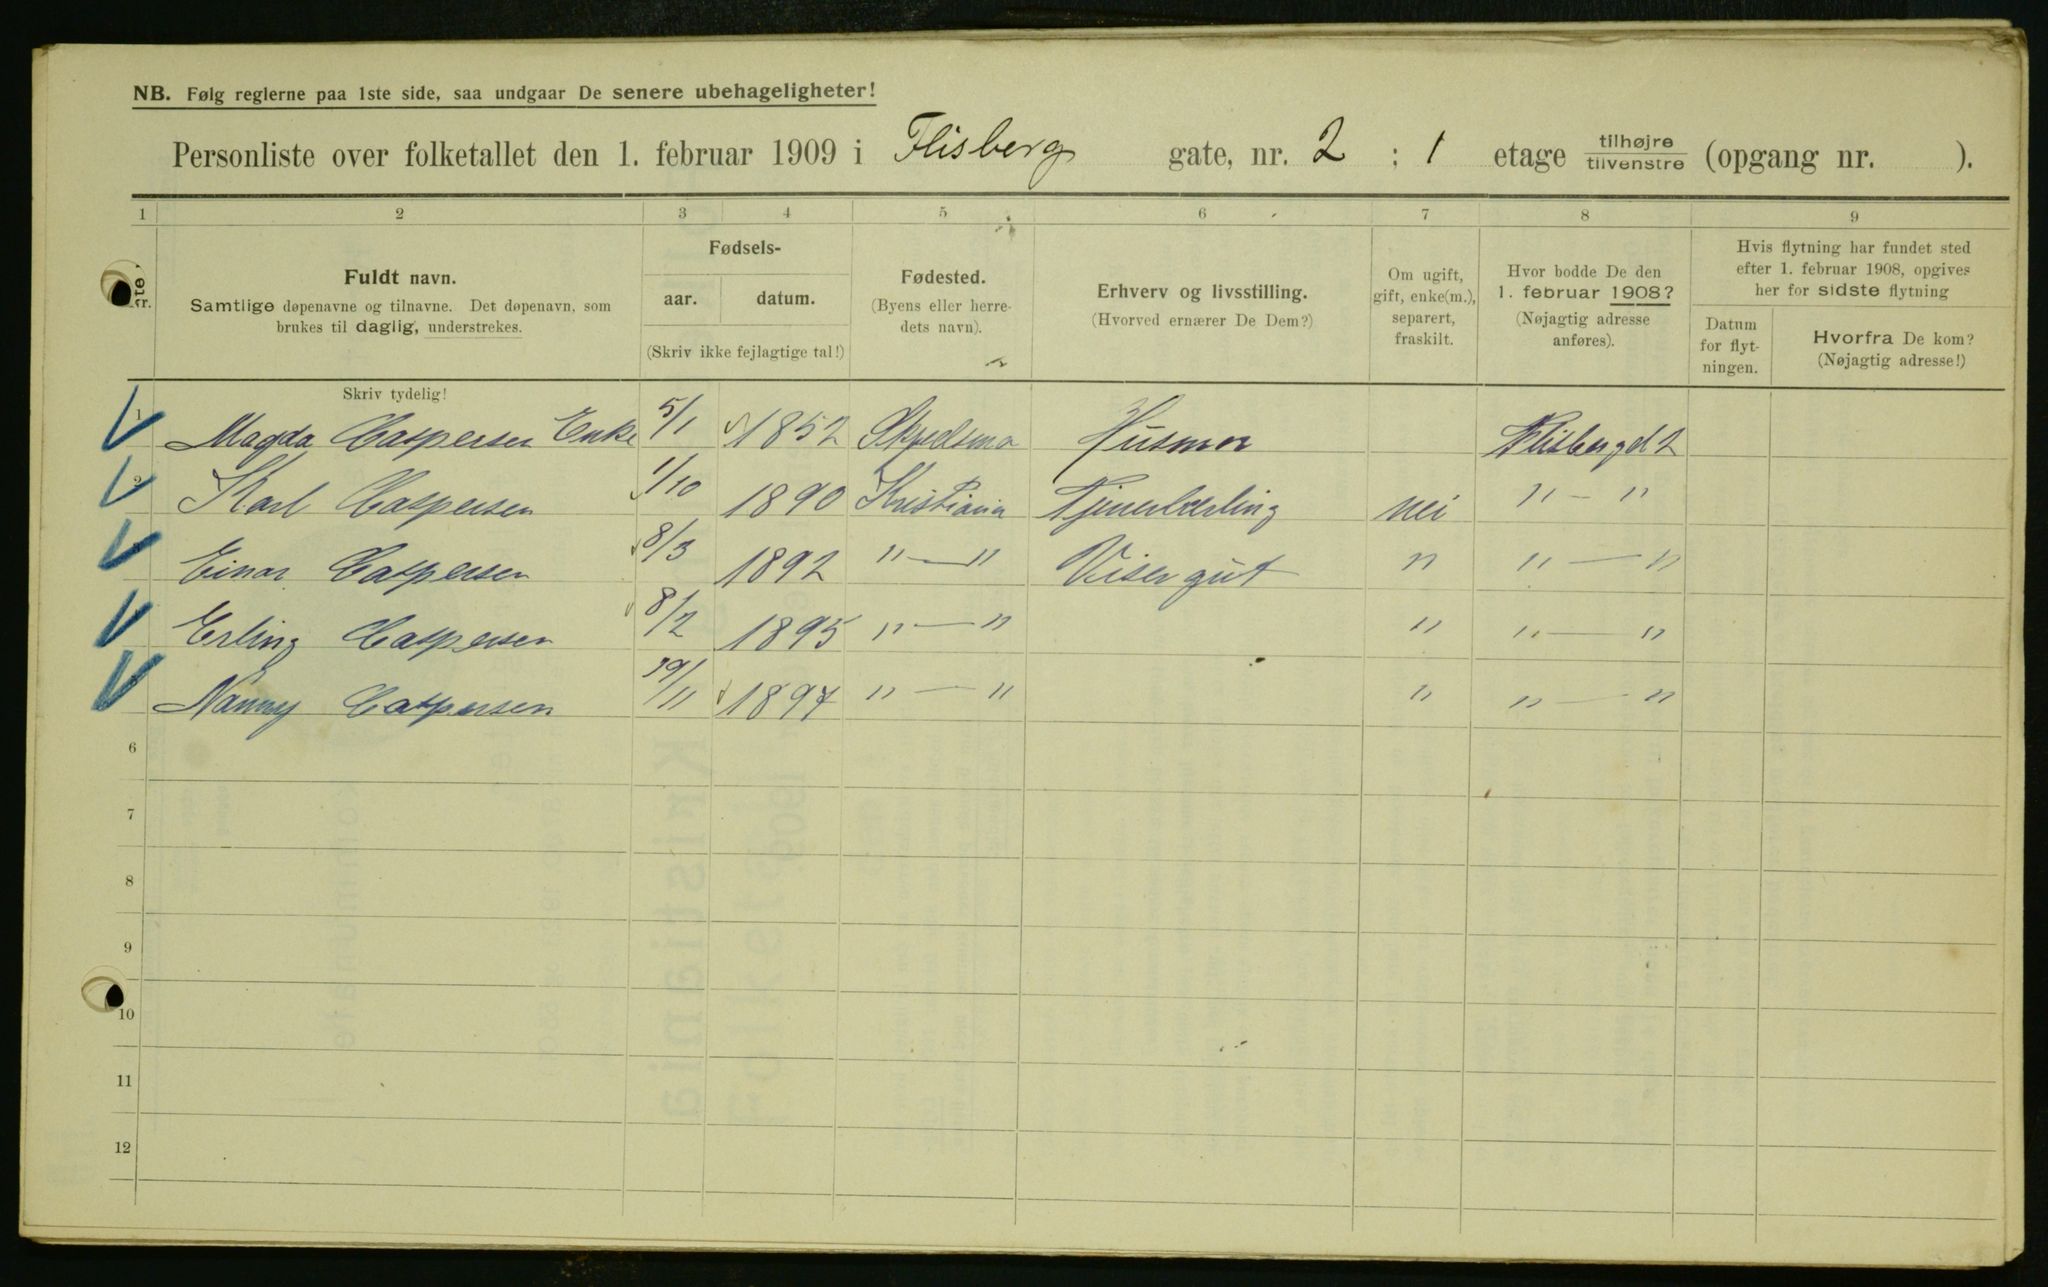 NB. Følg reglerne paa 1ste side, saa undgaar De senere ubehageligheter!
Personliste over folketallet den 1. februar 1909 i Flisberg gate, nr. 2 ; 1 etage tilhøjre tilvenstre (opgang nr. ).
1 2 3 4 5 6 7 8 9
Fuldt navn.
Samtlige døpenavne og tilnavne. Det døpenavn, som
brukes til daglig, understrekes.
Fødsels-
aar. datum.
(Skriv ikke fejlagtige tal!)
Fødested.
(Byens eller herre-
dets navn).
Erhverv og livsstilling.
(Hvorved ernærer De Dem?)
Om ugift,
gift, enke(m.),
separert,
fraskilt.
Hvor bodde De den
1. februar 1908?
(Nøjagtig adresse
anføres).
Hvis flytning har fundet sted
efter 1. februar 1908, opgives
her for sidste flytning
Datum
for flyt-
ningen.
Hvorfra De kom?
(Nøjagtig adresse!)
Skriv tydelig!
1 Magda Caspersen Enke 5/1 1852 Husmor Flisberggd 2
2 Karl Caspersen 1/10 1890 Kristiania nei " — "
Einar Caspersen 8/3 1892 " — " Visergut " " — "
Erling Caspersen 8/2 1895 " — " " " — "
Nanny Caspersen 1897 " — " " " — "
6
7
8
9
10
11
12